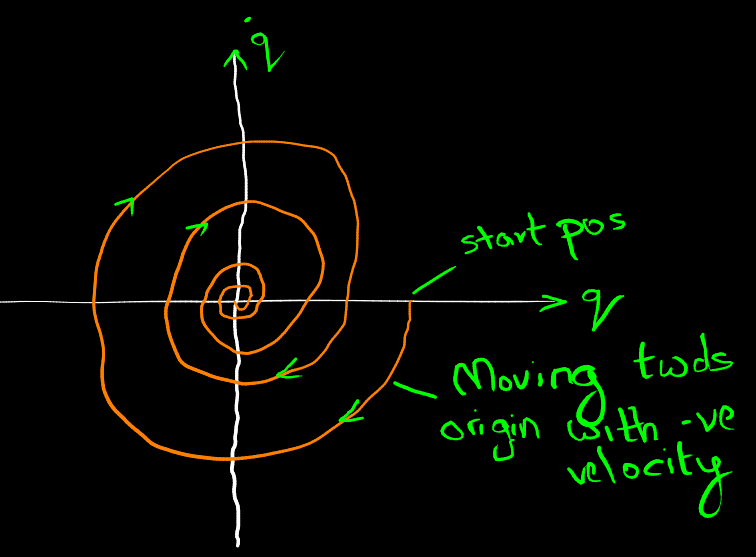 q̇
start pos
q
Moving twds
origin with -ve
velocity